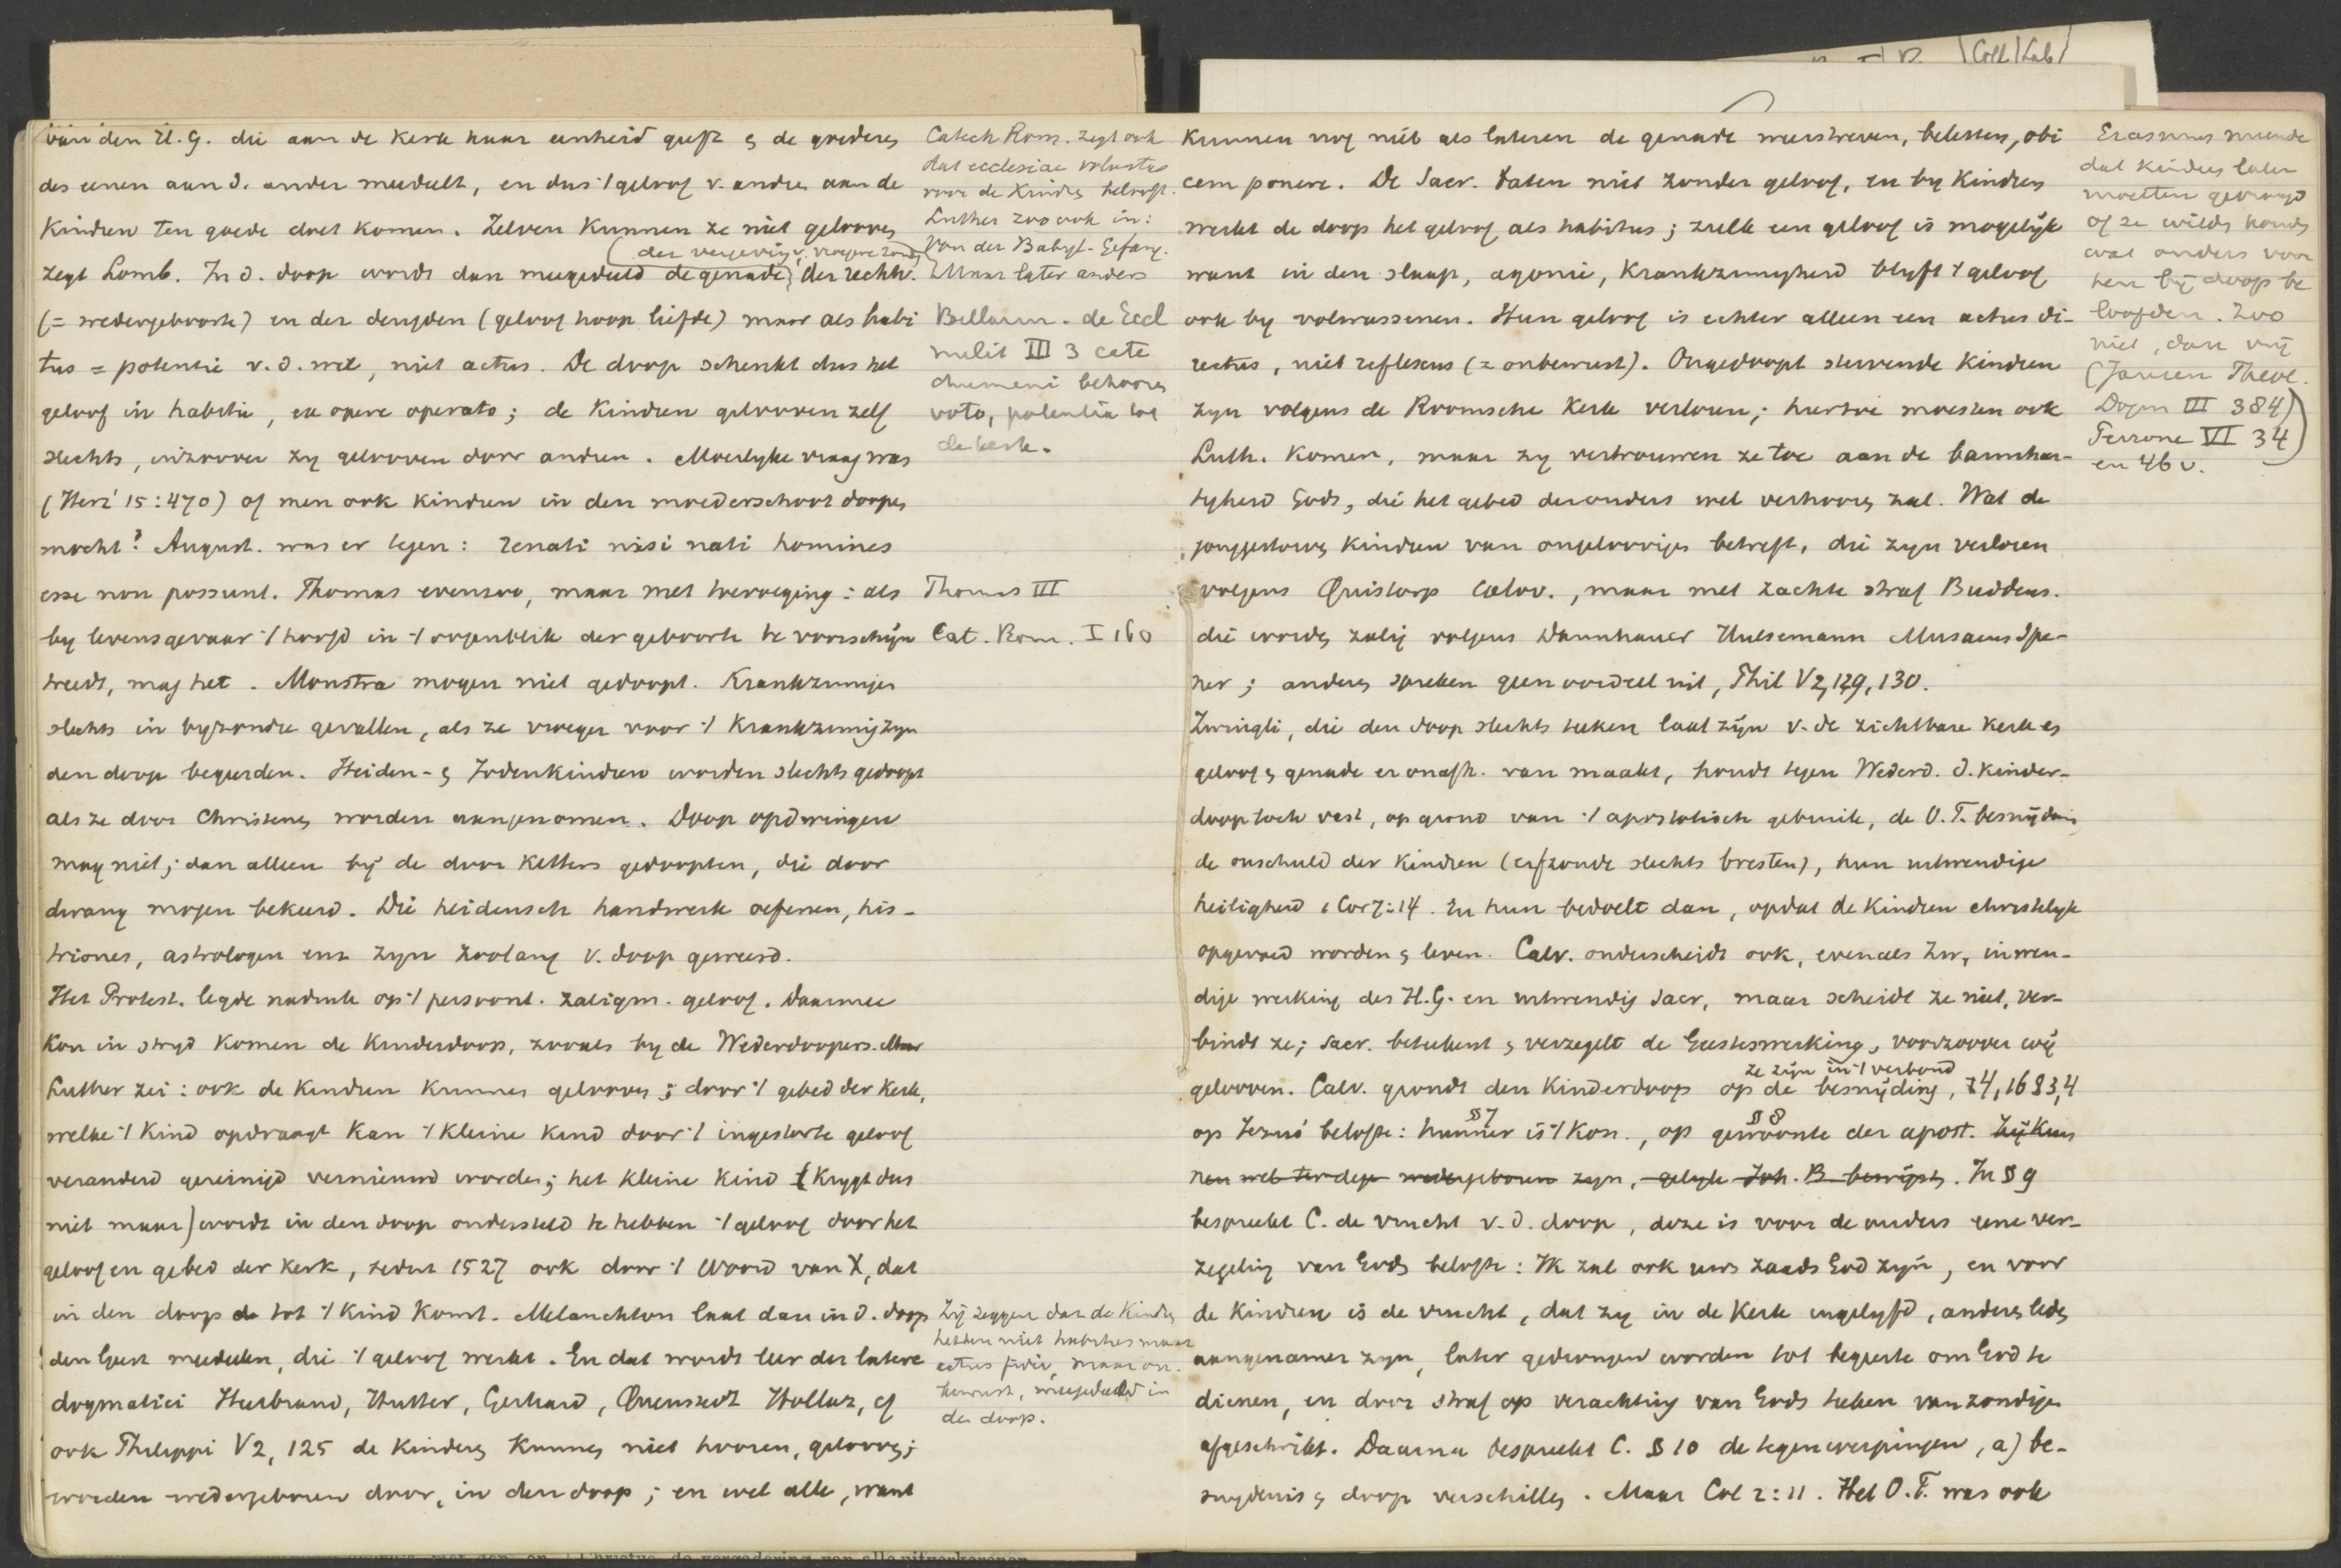 van den H.G. die aan de Kerk haar eenheid geeft & de goederen
des eenen aan d. ander meedeelt, en dus ⁒ geloof v. andren aan de
Kindren ten goede doet komen. Zelven kunnen ze niet gelooven
(der vergeving v. vroegere zonden)
zegt Lomb. In d. doop wordt dan meegedeeld de genade der rechtv.
(= wedergeboorte) en der deugden (geloof hoop liefde) maar als habi
tus = potentie v. d. wil, niet actus. De doop schenkt dus het
geloof in habitu, ex opere operato; de Kindren gelooven zelf
slechts, inzoover zy gelooven door andren. Moeilyke vraag was
(Heri 15:470) of men ook kindren in den moederschoot doopen
mocht? August. was er tegen: renati nisi nati homines
esse non possunt. Thomas evenzoo, maar met toevoeging: als
by levensgevaar ⁒ hoofd in ⁒ oogenblik der geboorte te voorschijn
treedt, mag het. Monstra mogen niet gedoopt. Krankzinnigen
slechts in byzondre gevallen, als ze vroeger voor ⁒ Krankzinnigzyn
den doop begeerden. Heiden- & Jodenkindren worden slechts gedoopt
als ze door Christenen worden aangenomen. Doop opdwingen
mag niet; dan alleen bij de door Ketters gedoopten, die door
dwang mogen bekeerd. Die heidensch handwerk oefenen, his-
triones, astrologen enz zyn zoolang v. doop geweerd.
Het Protest. legde nadruk op ⁒ persoonl. zaligm. geloof. Daarmee
Kon in stryd komen de Kinderdoop, zooals by de Wederdoopers. Maar
Luther zei: ook de Kindren kunnen gelooven; door ⁒ gebed der Kerk,
welke ⁒ Kind opdraagt kan ⁒ kleine Kind door ⁒ ingestorte geloof
veranderd gereinigd vernieuwd worden; het kleine Kind (Krygt dus
niet maar) wordt in den doop ondersteld te hebben ⁒ geloof door het
geloof en gebed der Kerk, sedert 1527 ook door ⁒ Woord van X, dat
in den doop de tot ⁒ Kind komt. Melanchton laat dan in d. doop
den Geest meedeelen, die ⁒ geloof werkt. En dat wordt leer der latere
dogmatici Heerbrand, Hutter, Gerhard, Quenstedt Hollaz, cf
ook Philippi V2, 125 de Kinderen kunnen niet hooren, gelooven;
worden wedergeboren door, in den doop; en wel alle, want
Catech Rom. zegt ook
dat ecclesiae voluntas
voor de Kindren belooft.
Luther zoo ook in:
Von der Babyl. Gefang.
Maar later anders
Bellarm. de Eccl
milit III 3 cate
chumeni behooren
voto, potentia tot
de kerk.
Thomas III
Cat. Rom. I 160
Zij zeggen dan de Kindren
hebben niet habitus maar
actus fidei, maar on-
bewust, meegedeeld in
den doop.
Kunnen nog niet als lateren de genade weerstreven, beletten, obi
cem ponere. De Sacr. baten niet zonder geloof, en by kindren
werkt de doop het geloof als habitus; zulk een geloof is mogelijk
want in den slaap, agonie, Krankzinnigheid blyft ⁒ geloof
ook by volwassenen. Hun geloof is echter alleen een actus di-
rectus, niet reflexus (= onbewust). Ongedoopt stervende Kindren
zyn volgens de Roomsche Kerk verloren; hiertoe moesten ook
Luth. komen, maar zy vertrouwen ze toe aan de barmhar-
tigheid Gods, die het gebed der ouders wel verhooren zal. Wat de
jonggestorven Kindren van ongeloovigen betreft, die zyn verloren
volgens Quistorp Calov., maar met zachte straf Buddeus.
die worden zalig volgens Dannhauer Hulsemann Musaeus Spe-
ner; anderen spreken geen oordeel uit, Phil V2, 129, 130.
Zwingli, die den doop slechts teeken laat zijn v. de zichtbare Kerk en
geloof & genade er onafh. van maakt, houdt tegen Wederd. d. Kinder-
doop toch vast, op grond van ⁒ apostolisch gebruik, de O.T. besnijdenis
de onschuld der Kindren (erfzonde slechts bresten), hun uitwendige
heiligheid 1 Cor 7:14. En hun bedoelt dan, opdat de Kindren christelyk
opgevoed worden & leven. Calv. onderscheidt ook, evenals Zw, inwen-
dige werking des H.G. en uitwendig Sacr, maar scheidt ze niet, ver-
bindt ze; Sacr. beteekent & verzegelt de Geesteswerking, voorzoover wij
ze zijn in ⁒ verbond
gelooven. Calv. grondt den Kinderdoop op de besnijding, 4,16 § 3,4
§ 7 § 8
op Jezus' belofte: hunner is ⁒ Kon., op gewoonte der apost. Zij kun
nen wel terdege wedergeboren zyn, gelyk Joh. B bewijst. In § 9
bespreekt C. de vrucht v. d. doop, deze is voor de ouders eene ver-
zegeling van Gods belofte: Ik zal ook uws zaads God zyn, en voor
de Kindren is de vrucht, dat zy in de Kerk ingelyfd, anderen leden
aangenamer zyn, later gedrongen worden tot begeerte om God te
dienen, en door straf op verachting van Gods teeken van zondigen
afgeschrikt. Daarna bespreekt C. § 10 de tegenwerpingen, a) be-
snydenis & doop verschillen. Maar Col 2:11. Het O.T. was ook
Erasmus meende
dat kindren later
moesten gevraagd
of ze wilden houden
wat anders voor
hen bij doop be
loofden. Zoo
niet, dan vrij
(Jansen Theol.
Dogm III 384)
Perrone VI 34
en 46 v.
Coll Lab